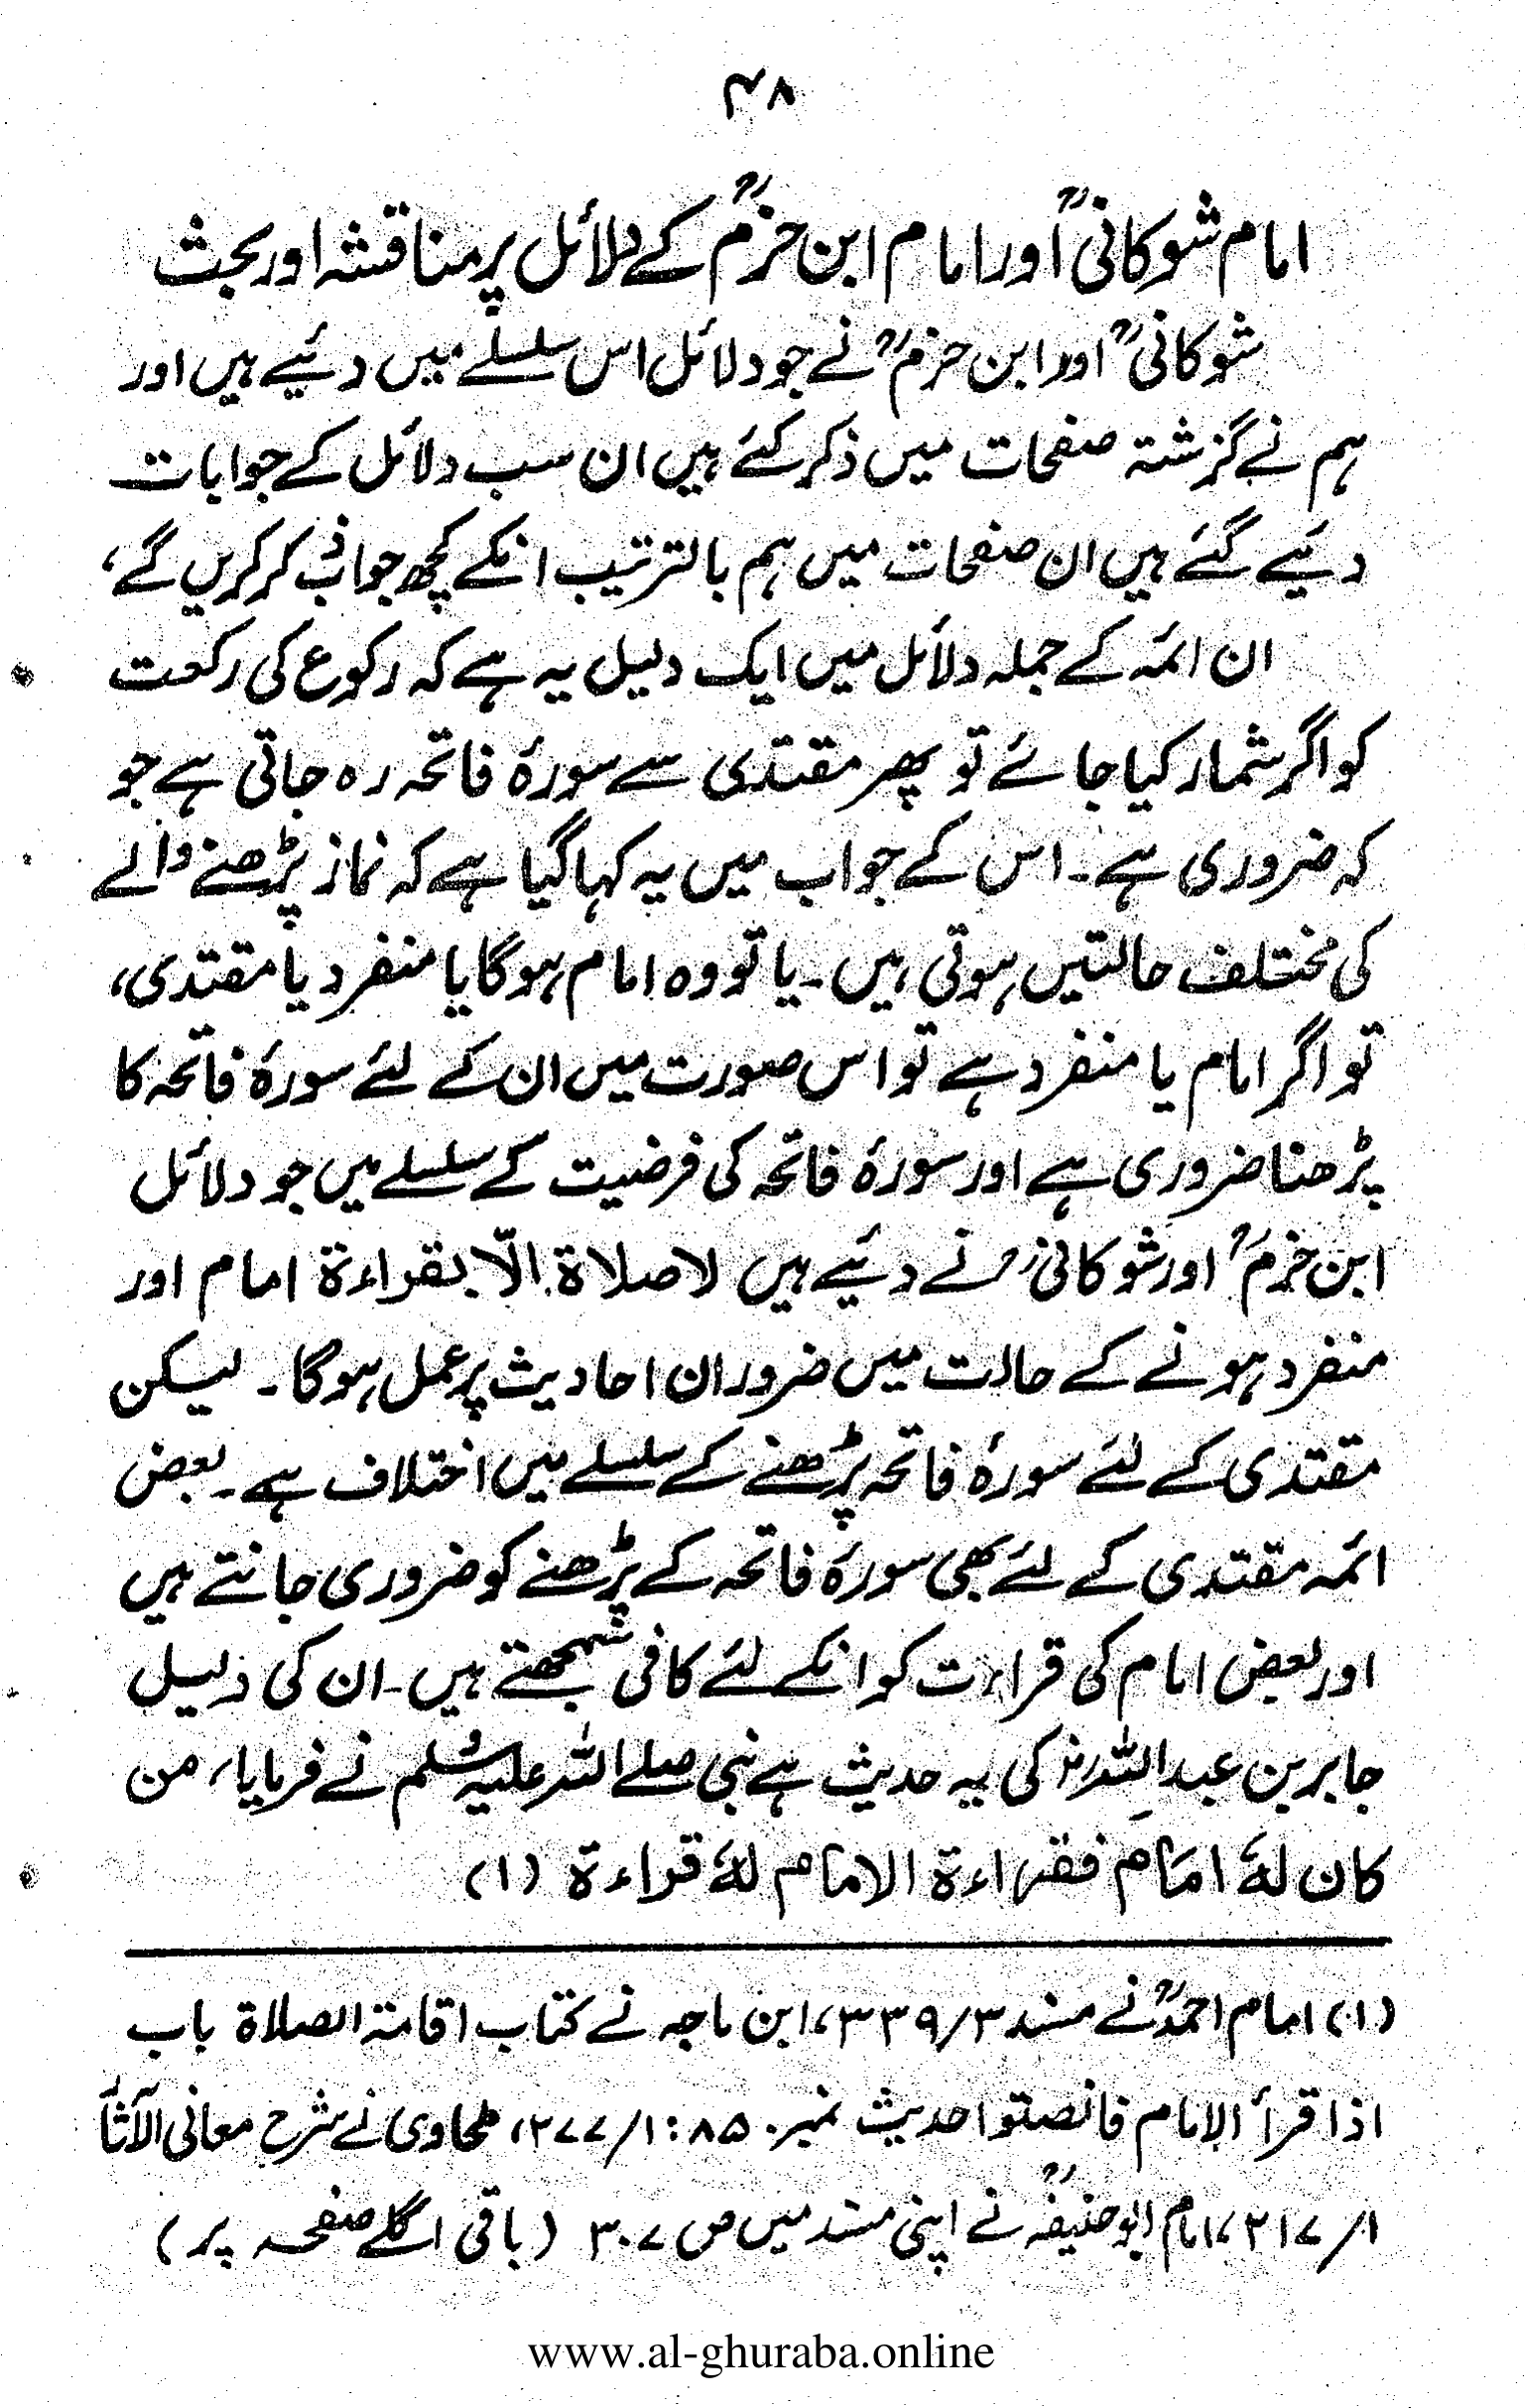 ۴۸
امام شوکانیؒ اور امام ابن حزمؒ کے دلائل پر مناقشہ اور بحث
شوکانیؒ اور ابن حزمؒ نے جو دلائل اس سلسلے میں دئیے ہیں اور
ہم نے گزشتہ صفحات میں ذکر کئے ہیں ان سب دلائل کے جوابات
دئیے گئے ہیں ان صفحات میں ہم بالترتیب انکے کچھ جواب ذکر کریں گے،
ان ائمہ کے جملہ دلائل میں ایک دلیل یہ ہے کہ رکوع کی رکعت
کو اگر شمار کیا جائے تو پھر مقتدی سے سورۂ فاتحہ رہ جاتی ہے جو
کہ ضروری ہے۔ اس کے جواب میں یہ کہا گیا ہے کہ نماز پڑھنے والے
کی مختلف حالتیں ہوتی ہیں۔ یا تو وہ امام ہوگا یا منفرد یا مقتدی،
تو اگر امام یا منفرد ہے تو اس صورت میں ان کے لئے سورۂ فاتحہ کا
پڑھنا ضروری ہے اور سورۂ فاتحہ کی فرضیت کے سلسلے میں جو دلائل
ابن حزمؒ اور شوکانیؒ نے دئیے ہیں لا صلاة الّا بقراءة امام اور
منفرد ہونے کے حالت میں ضرور ان احادیث پر عمل ہوگا۔ لیکن
مقتدی کے لئے سورۂ فاتحہ پڑھنے کے سلسلے میں اختلاف ہے۔ بعض
ائمہ مقتدی کے لئے بھی سورۂ فاتحہ کے پڑھنے کو ضروری جانتے ہیں
اور بعض امام کی قراءت کو انکے لئے کافی سمجھتے ہیں۔ ان کی دلیل
جابر بن عبداللہؓ کی یہ حدیث ہے نبی صلے اللہ علیہ وسلم نے فرمایا، من
کان لہٗ امَام فقراءة الامام لہٗ قراءة (۱)
(۱) امام احمدؒ نے مسند ۳/۳۳۹، ابن ماجہ نے کتاب اقامۃ الصلاة باب
اذا قرأ الإمام فانصتوا حدیث نمبر ۸۵۰: ۱/۲۷۷، طحاوی نے شرح معانی الآثار
۱/۲۱۷، امام ابو حنیفہؒ نے اپنی مسند میں ص ۳۰۷ (باقی اگلے صفحہ پر)
www.al-ghuraba.online